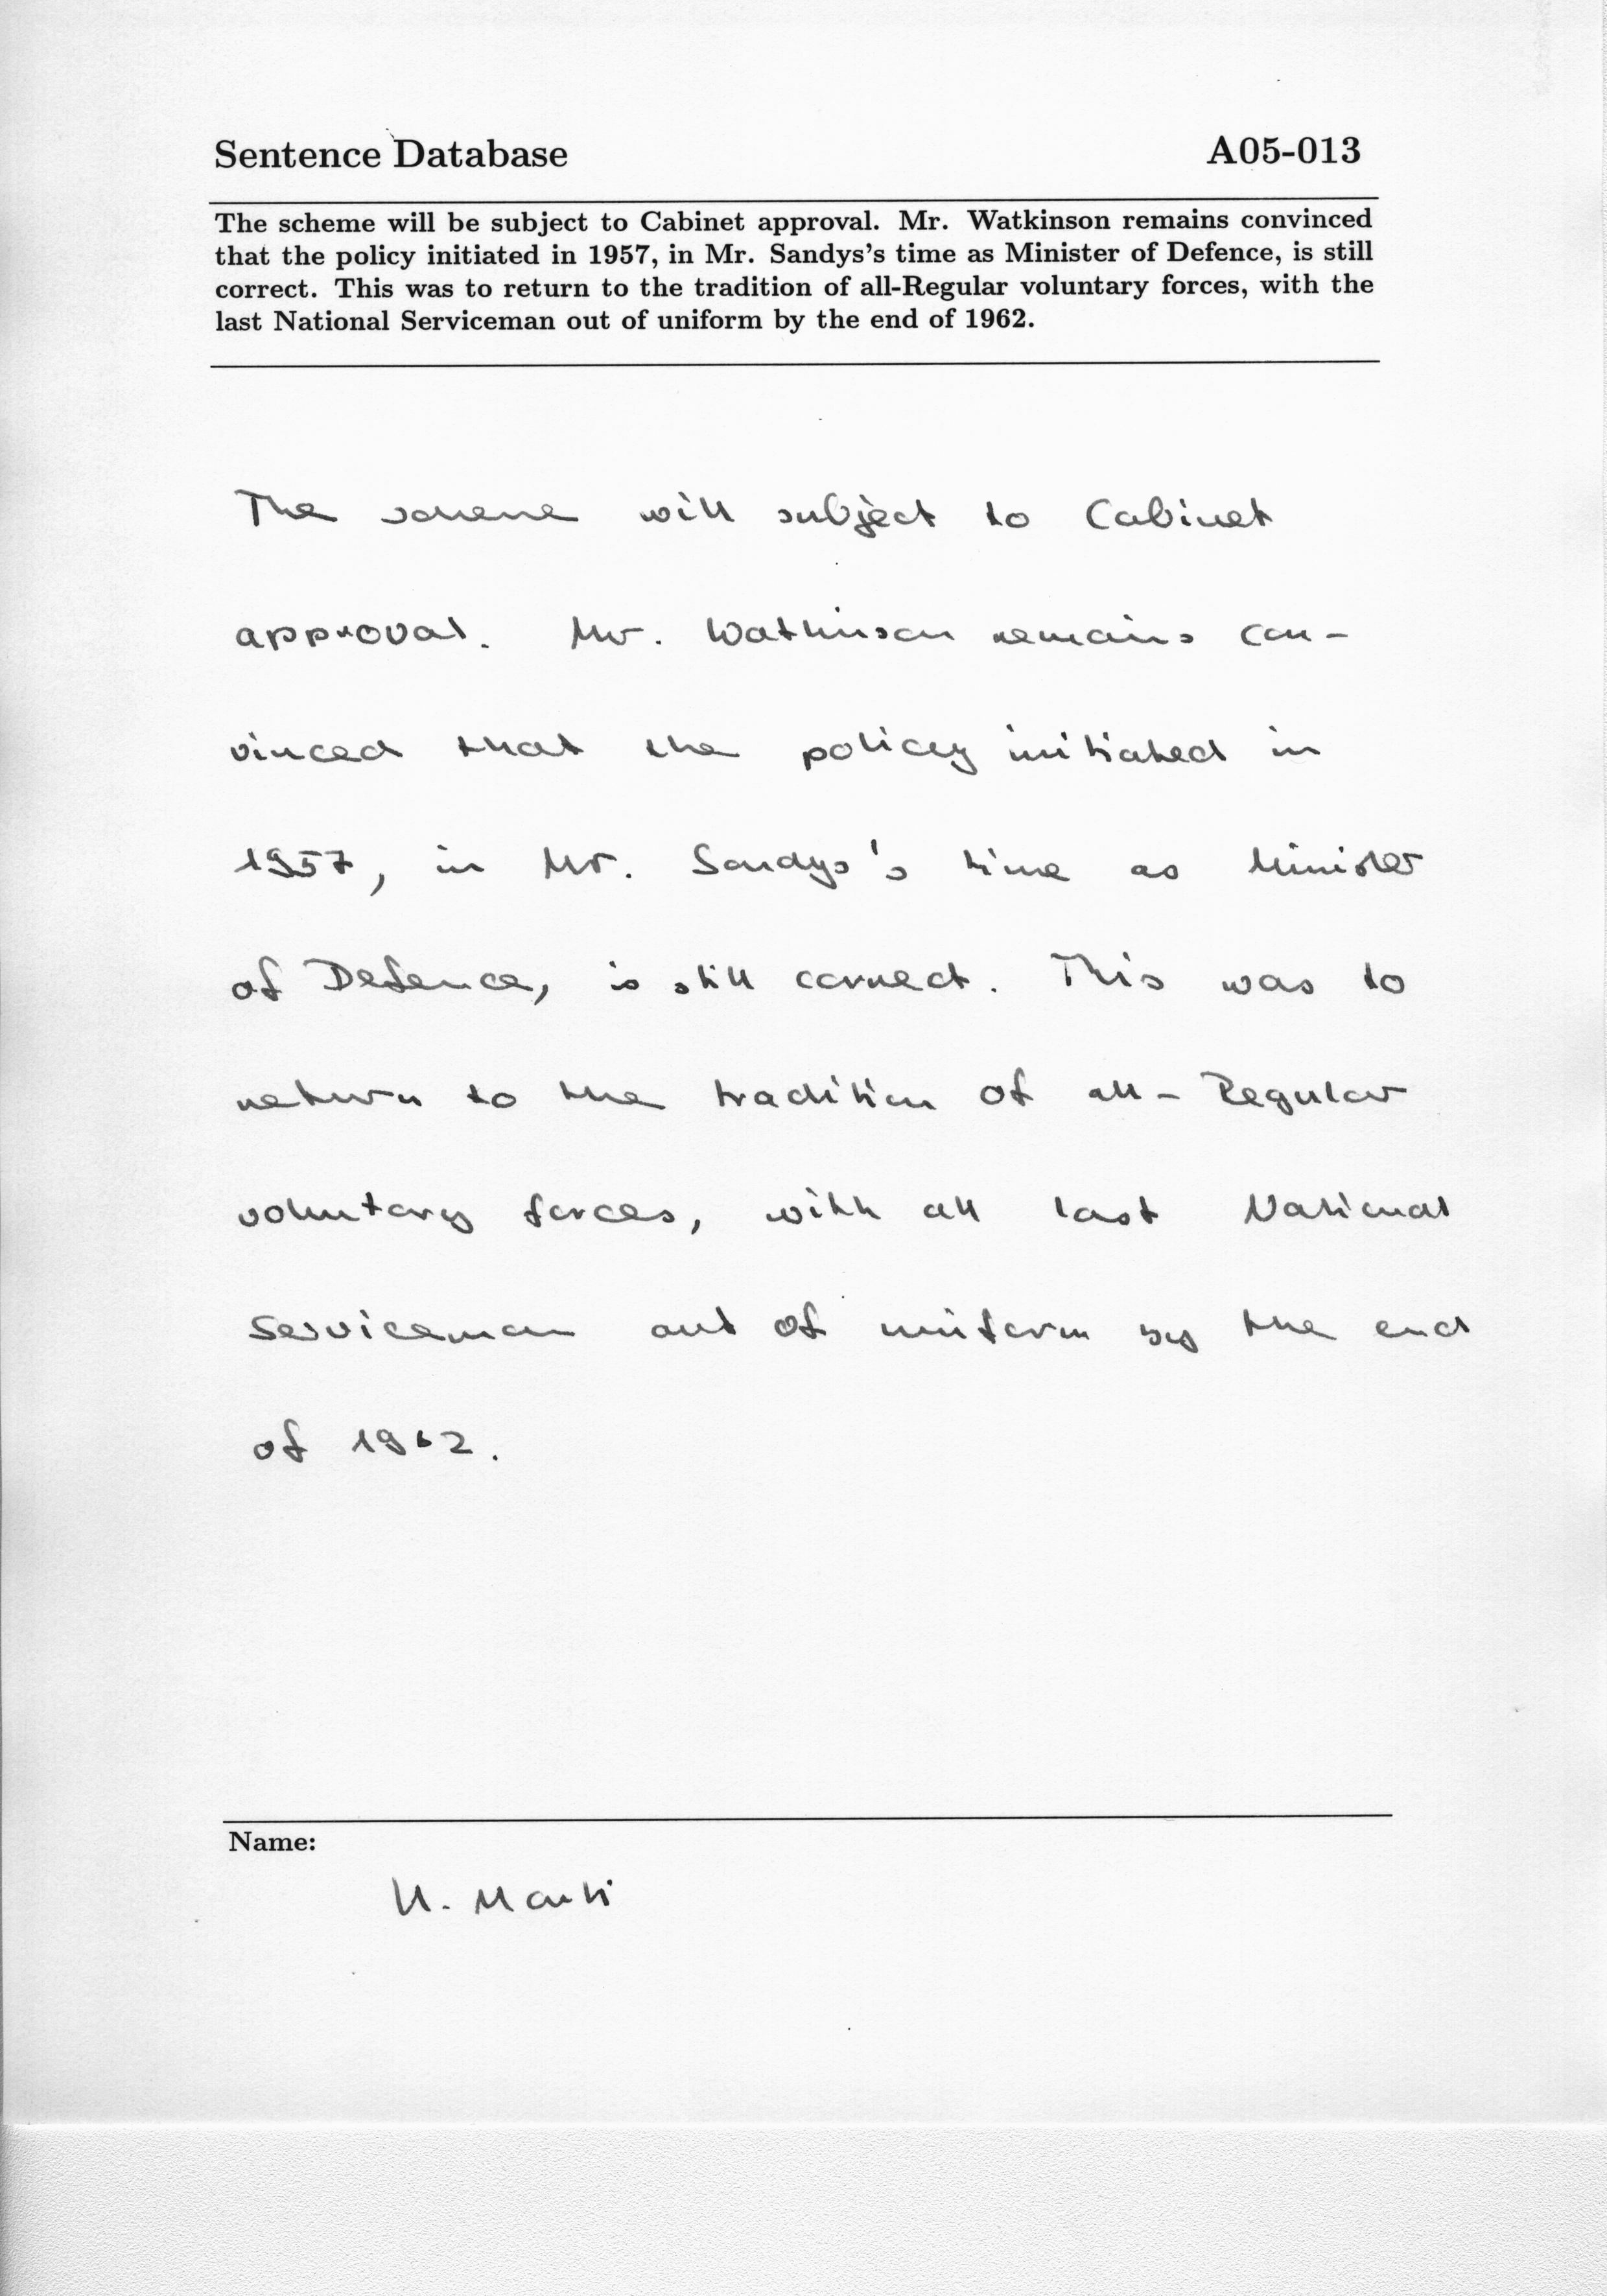 Sentence Database A05-013
The scheme will be subject to Cabinet approval. Mr. Watkinson remains convinced
that the policy initiated in 1957, in Mr. Sandys's time as Minister of Defence, is still
correct. This was to return to the tradition of all-Regular voluntary forces, with the
last National Serviceman out of uniform by the end of 1962.
The scheme will subject to Cabinet
approval. Mr. Watkinson remains con-
vinced that the policy initiated in
1957, in Mr. Sandys's time as Minister
of Defence, is still correct. This was to
return to the tradition of all-Regular
voluntary forces, with all last National
Serviceman out of uniform by the end
of 1962.
Name: